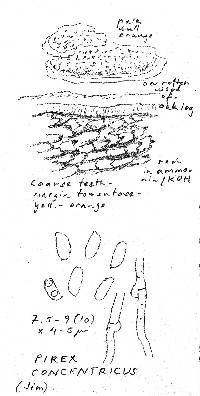 pale
dull
orange
on rotten
wood
of
oak log
red
in ammo-
nia/KOH
Coarse teeth -
margin tomentose -
yell. - orange
7.5 - 9 (10)
x 4-5 µ
PIREX
CONCENTRICUS
(Jim)